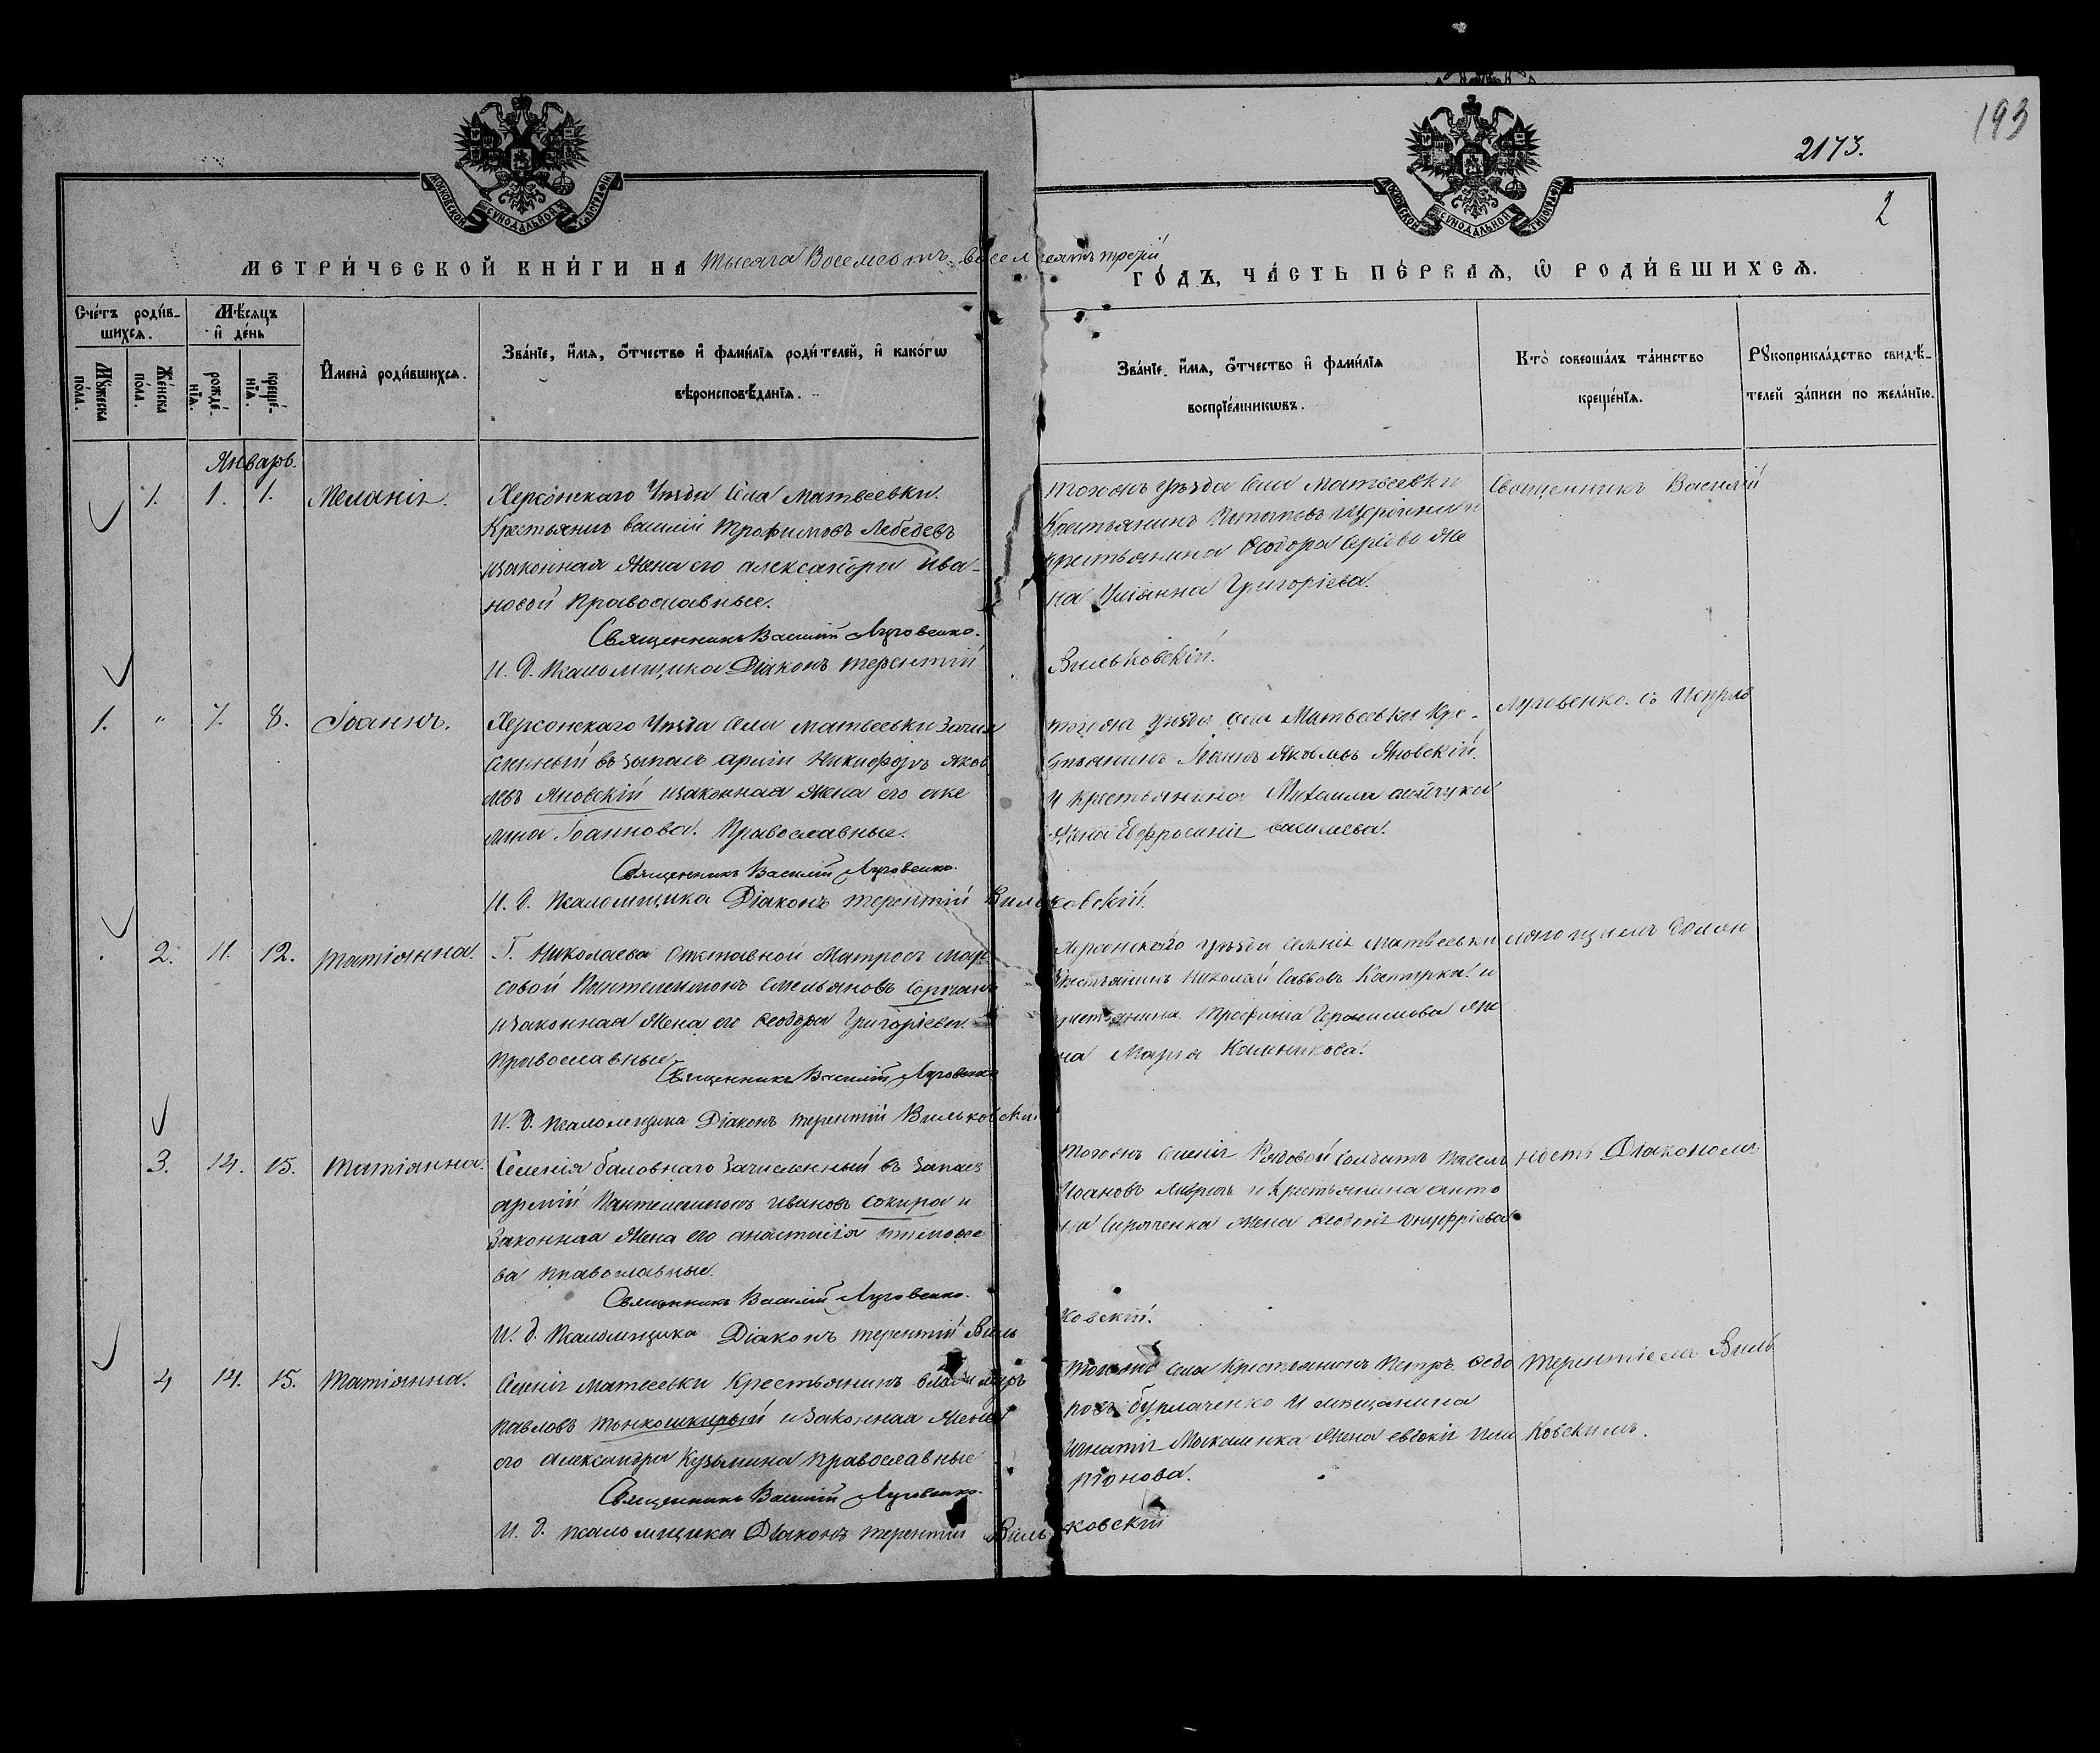 193
2173.
2
МОСКОВСКОЙ СѴНОДАЛЬНОЙ ТИПОГРАФІИ
МОСКОВСКОЙ СѴНОДАЛЬНОЙ ТИПОГРАФІИ
МЕТРИ́ЧЕСКОЙ КНИ́ГИ НА Тысяча Восемсотъ восемдесятъ третій
ГО́ДЪ, ЧА́СТЬ ПЕ́РВАѦ, Ѡ РОДИ́ВШИХСѦ.
Сче́тъ роди́в-
шихсѧ.
Мꙋ́жеска по́ла.
Же́нска по́ла.
Мѣ́сяцъ
и҆ де́нь
рожде́-
нїѧ.
креще́-
нїѧ.
И҆мена̀ роди́вшихсѧ.
Зва́нїе, и҆́мѧ, ѻ҆́тчество и҆ фами́лїѧ роди́телей, и҆ како́гѡ
вѣроисповѣ́данїѧ.
Зва́нїе, и҆́мѧ, ѻ҆́тчество и҆ фами́лїѧ
воспрїе́мникѡвъ.
Кто̀ соверша́лъ та́инство
креще́нїѧ.
Рꙋкоприкла́дство свидѣ́-
телей за́писи по жела́нїю.
Январь.
1. 1. 1. Меланія.
Херсонскаго Уѣзда Села Матвеевки.
Крестьянинъ Василій Трофимовъ Лебедевъ
изаконная Жена его александра Ива-
новой Православные.
Священникъ Василій Луговенко.
И. д. Псаломщика Діаконъ терентій
Вильковскій.
тогожъ Уѣзда Села Матвеевки
Крестьянинъ
крестьянина Ѳеодора Же
на Уліанна Григоріева.
Священникъ Василій
1. " 7. 8. Іоаннъ.
Херсонскаго Уѣзда Села матвеевки Зачи
сленный въ запасъ арміи Никифоръ Яков
левъ Яновскій изаконная Жена его аке
лина Іоаннова. Православные.
Священникъ Василій Луговенко.
И. д. Псаломщика Діаконъ терентій Вильковскій.
тогожъ уѣзда села Матвеевки Кре-
стьянинъ Іоаннъ Яковлевъ Яновскій.
и крестьянина Михаила
Жена Евфросинія Васильева.
Луговенко. съ Исправ
2. 11. 12. татіянна.
Г. Николаева Отставной Матросъ мар
совой Пантелеимонъ Емельяновъ
изаконная Жена его Ѳеодора Григоріева.
православные
Священникъ Василій Луговенко
И. д. Псаломщика Діаконъ терентій Вильковскій
Херсонскаго уѣзда селенія матвеевки
Крестьянинъ Николай Саввовъ Костырка. и
крестьянина Трофима Герасимова Же
на Марія Калиникова.
ляющимъ Должн
3. 14. 15. татіянна.
Селенія Баловнаго Зачисленный въ запасъ
армій Пантелеимонъ Ивановъ Сокира и
Законная Жена его анастасія тимофее
ва православные.
Священникъ Василій Луговенко.
И. д. Псаломщика Діаконъ терентій Виль
ковскій.
тогожъ селенія Рядовой Солдатъ Павелъ
Іоановъ и крестьянина анто
на Жена Ѳеодосія Онуфріева
ность Діакономъ
4 14. 15. татіянна.
Селенія матвеевки Крестьянинъ Владимиръ
павловъ тонкошкирый изаконная Жена
его Александра Кузьмина православные
Священникъ Василій Луговенко.
И. д. псаломщика Діаконъ терентій Виль
ковскій
тогожъ села Крестьянинъ Петръ Ѳедо
ровъ Бурлаченко и мещанина
Игнатія Жена евдокія
ріонова.
терентіемъ Виль
Ковскимъ.